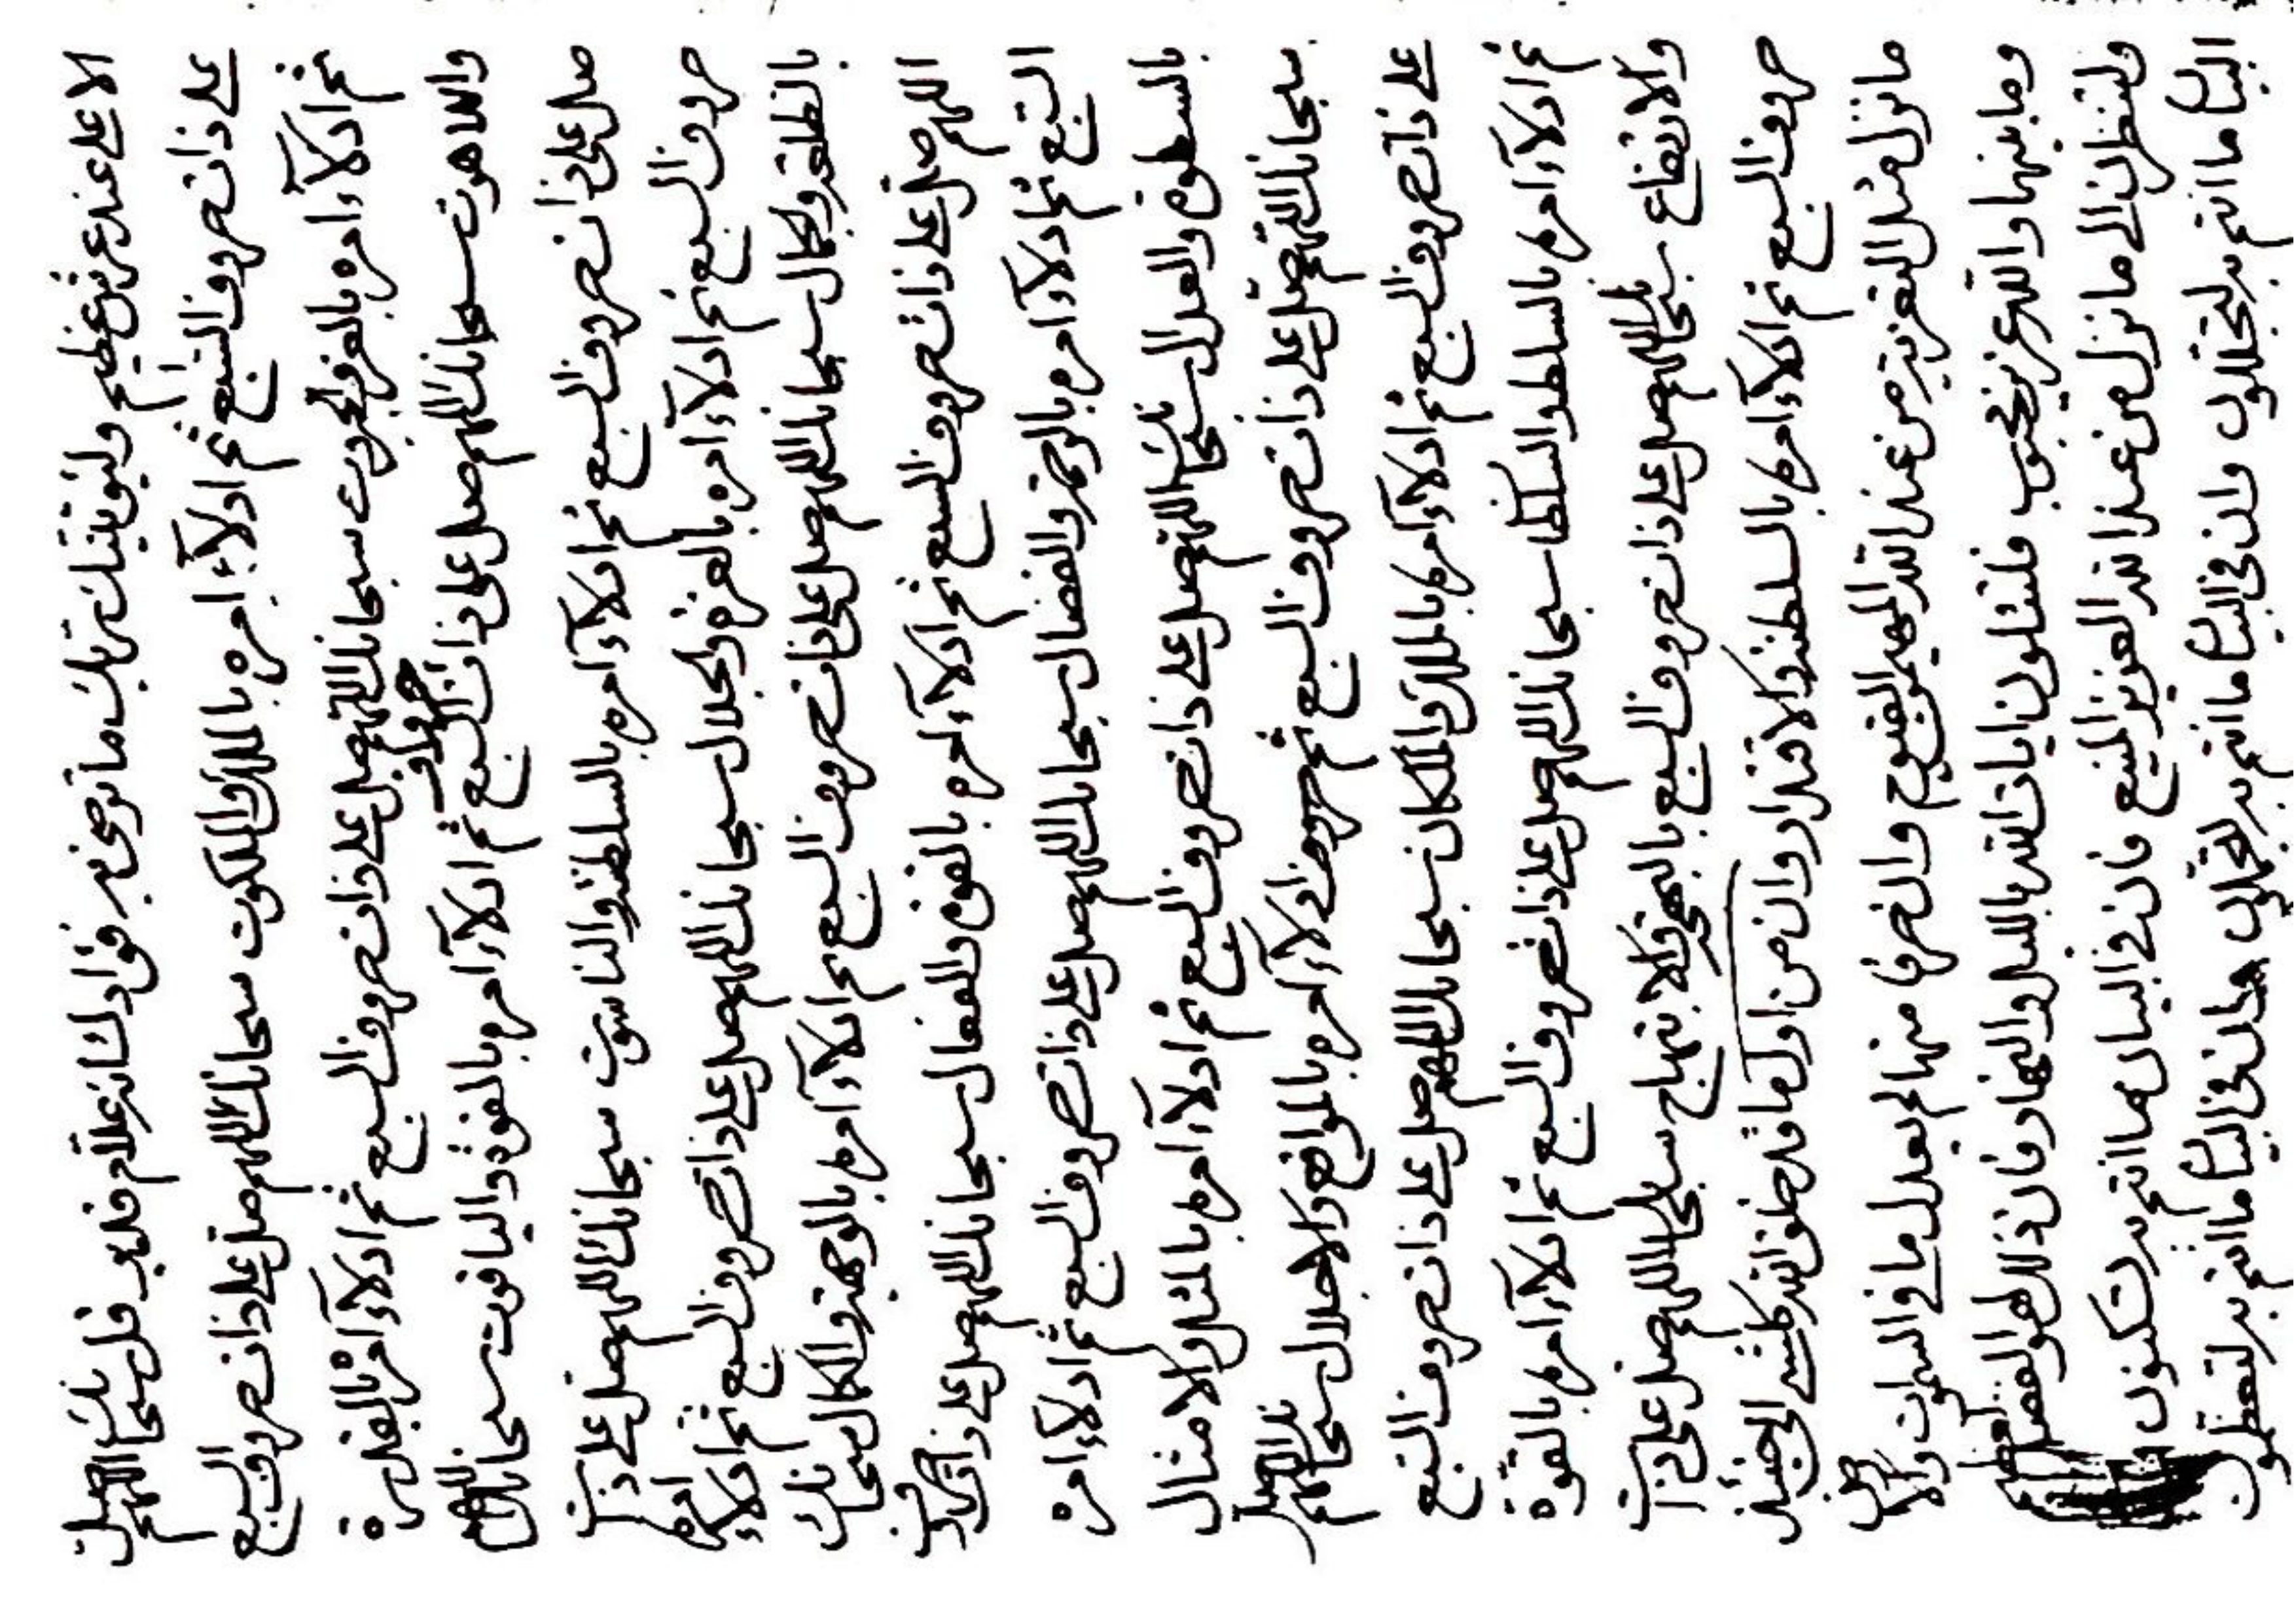 الاعلى عند عرش عظيم ما ترضى به فؤادك انه علام قل سبحانك اللهم صل
على ذات حروف السبع ثم ادلآء امره بالملك والملكوت سبحانك اللهم صل على ذات حروف السبع
ثم ادلآء امره بالعز والجبروت سبحانك اللهم صل على ذات حروف السبع ثم ادلآء امره بالقدرة
واللاهوت سبحانك اللهم صل على ذات حروف السبع ثم ادلآء امره بالقوة والياقوت سبحانك اللهم
صل على ذات حروف السبع ثم ادلآء امره بالسلطنة والناسوت سبحانك اللهم صل على ذات
حروف السبع ثم ادلآء امره بالعزة والجلال سبحانك اللهم صل على ذات حروف السبع ثم ادلآء امره
بالطلعة والجمال سبحانك اللهم صل على ذات حروف السبع ثم ادلآء امره بالوجهة والكمال سبحانك
اللهم صل على ذات حروف السبع ثم ادلآء امره بالقوة والفعال سبحانك اللهم صل على ذات حروف
السبع ثم ادلآء امره بالرحمة والفضال سبحانك اللهم صل على ذات حروف السبع ثم ادلآء امره
بالسطوة والعدال سبحانك اللهم صل على ذات حروف السبع ثم ادلآء امره بالمثل والامثال
سبحانك اللهم صل على ذات حروف السبع ثم ادلآء امره بالمواقع والاجلال سبحانك اللهم صل
على ذات حروف السبع ثم ادلآء امره بالملك سبحانك اللهم صل على ذات حروف السبع
ثم ادلآء امره سبحانك اللهم صل على ذات حروف السبع ثم ادلآء امره بالقوة
والارتفاع سبحانك اللهم صل على ذات حروف السبع بالبهجة والابتهاج سبحانك اللهم صل على ذات
حروف السبع ثم ادلآء امره بالسلطنة والاقتدار وان من اول ما قد خلق الله كلشئ الى حينئذ
ما نزل مثل من عند الله المهيمن القيوم وان حرفا منها لم يعدل ما في السموات والارض
وما بينهما والله عزيز محبوب فلتتلون ايات الله بالليل والنهار فان ذلك لهو الفضل العظيم
ولتنظرن الى ما نزل من عند الله العزيز المنيع فان في البيان ما انتم به تسكنون
البيا ما انتم به لتجللون وان في البيا ما انتم به لتجملون وان في البيا ما انتم به لتعظمون